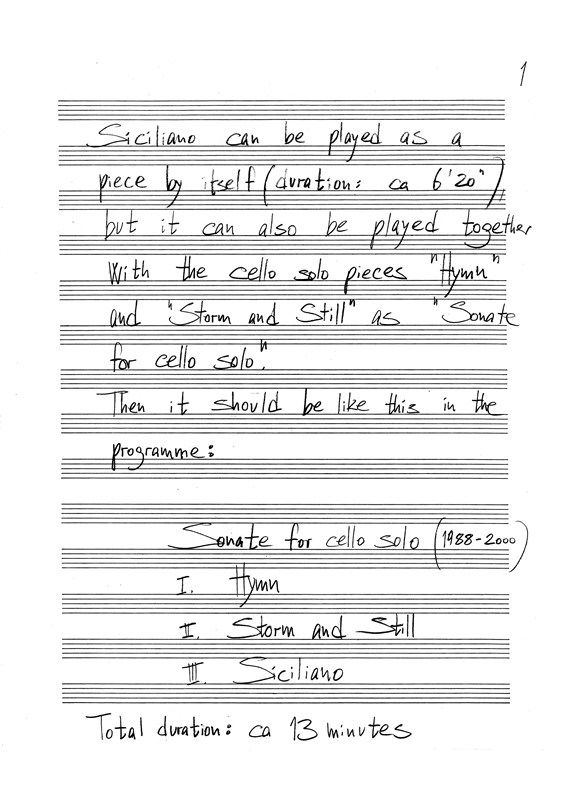 1
Siciliano can be played as a
piece by itself (duration: ca 6'20"),
but it can also be played together
With the cello solo pieces "Hymn"
and "Storm and Still" as "Sonate
for cello solo".
Then it should be like this in the
programme:
Sonate for cello solo (1988-2000)
I. Hymn
II. Storm and Still
III. Siciliano
Total duration: ca 13 minutes